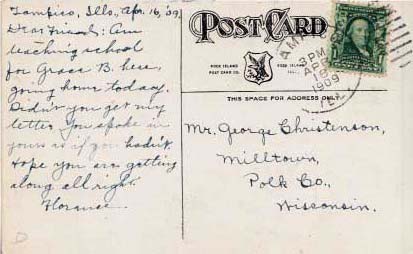 Tampico, Ills, Apr. 16, '09,
Dear Friend: Am
teaching school
for Grace B. here,
going home today.
Didn't you get my
letter you spoke in
yours as if you hadn't.
Hope you are getting
along all right.
Florence
POST CARD
ROCK ISLAND
POST CARD CO.
ROCK ISLAND
ILL.
THIS SPACE FOR ADDRESS ONLY
3 PM
APR
16
1909
ILL.
Mr. George Christenson,
Milltown,
Polk Co.,
Wisconsin.